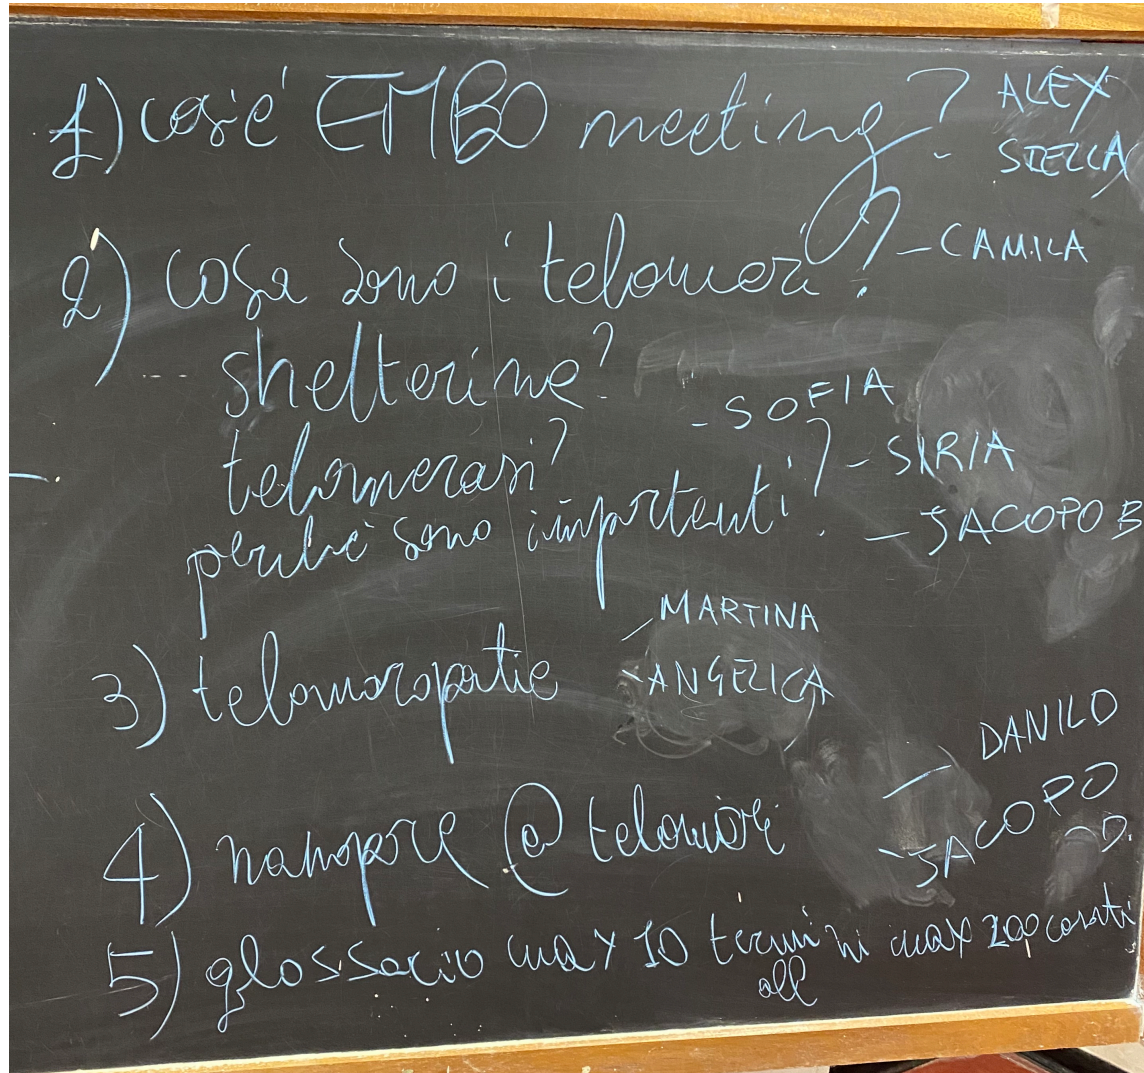 1) cos'è EMBO meeting? ALEX
STELLA
2) cosa sono i telomeri? - CAMILA
shelterine?
- SOFIA
telomerasi?
perché sono importanti? - SIRIA
- JACOPO B
3) telomeropatie - MARTINA
- ANGELICA
4) nanopore @ telomeri - DANILO
- JACOPO
D.
5) glossario max 10 termini max 200 caratti
all